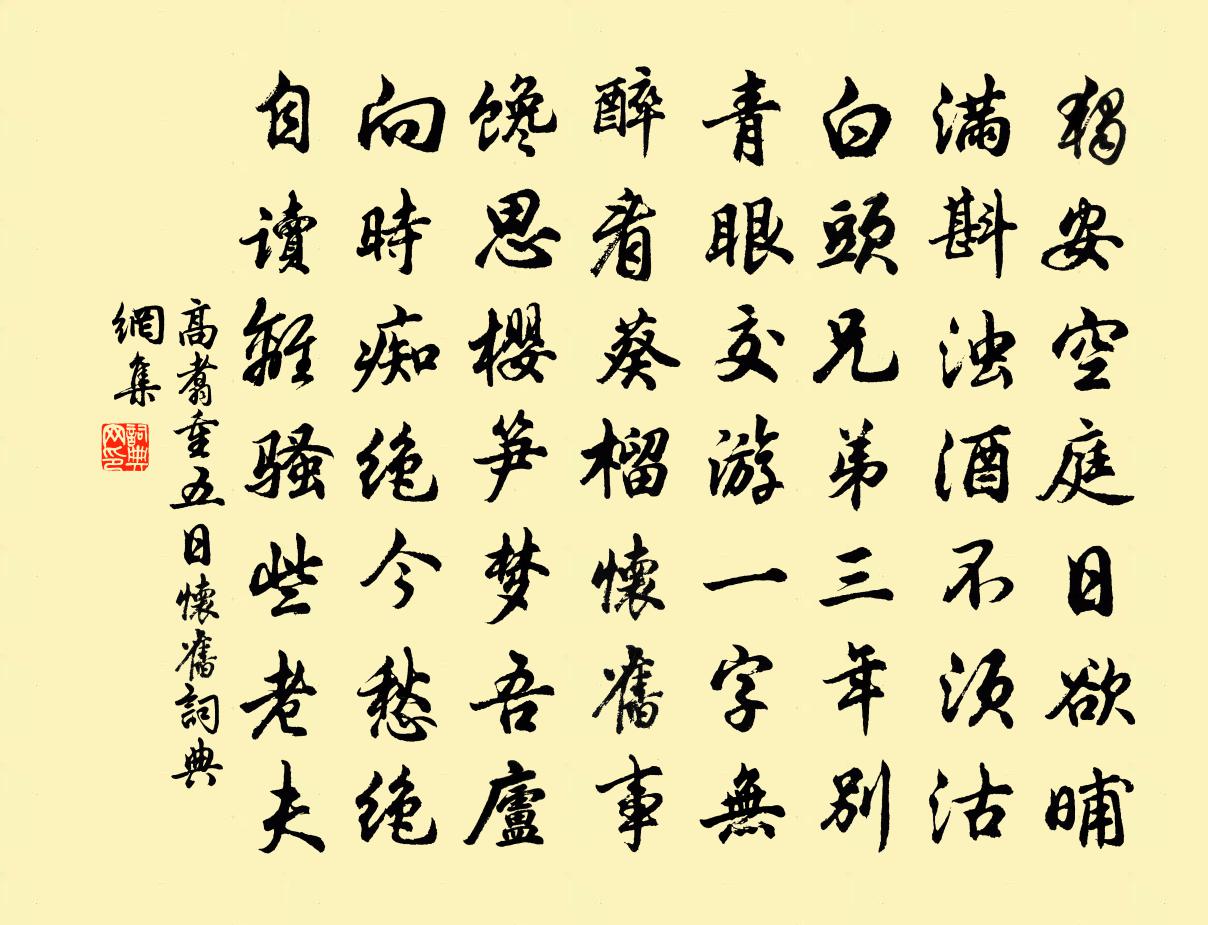 獨安空庭日欲晡
满斟浊酒不须沽
白頭兄弟三年别
青眼交游一字無
醉看葵榴懷舊事
馋思櫻笋梦吾廬
向時痴绝今愁绝
自读離骚些老夫
高翥重五日懷舊詞典
網集
詞典网印